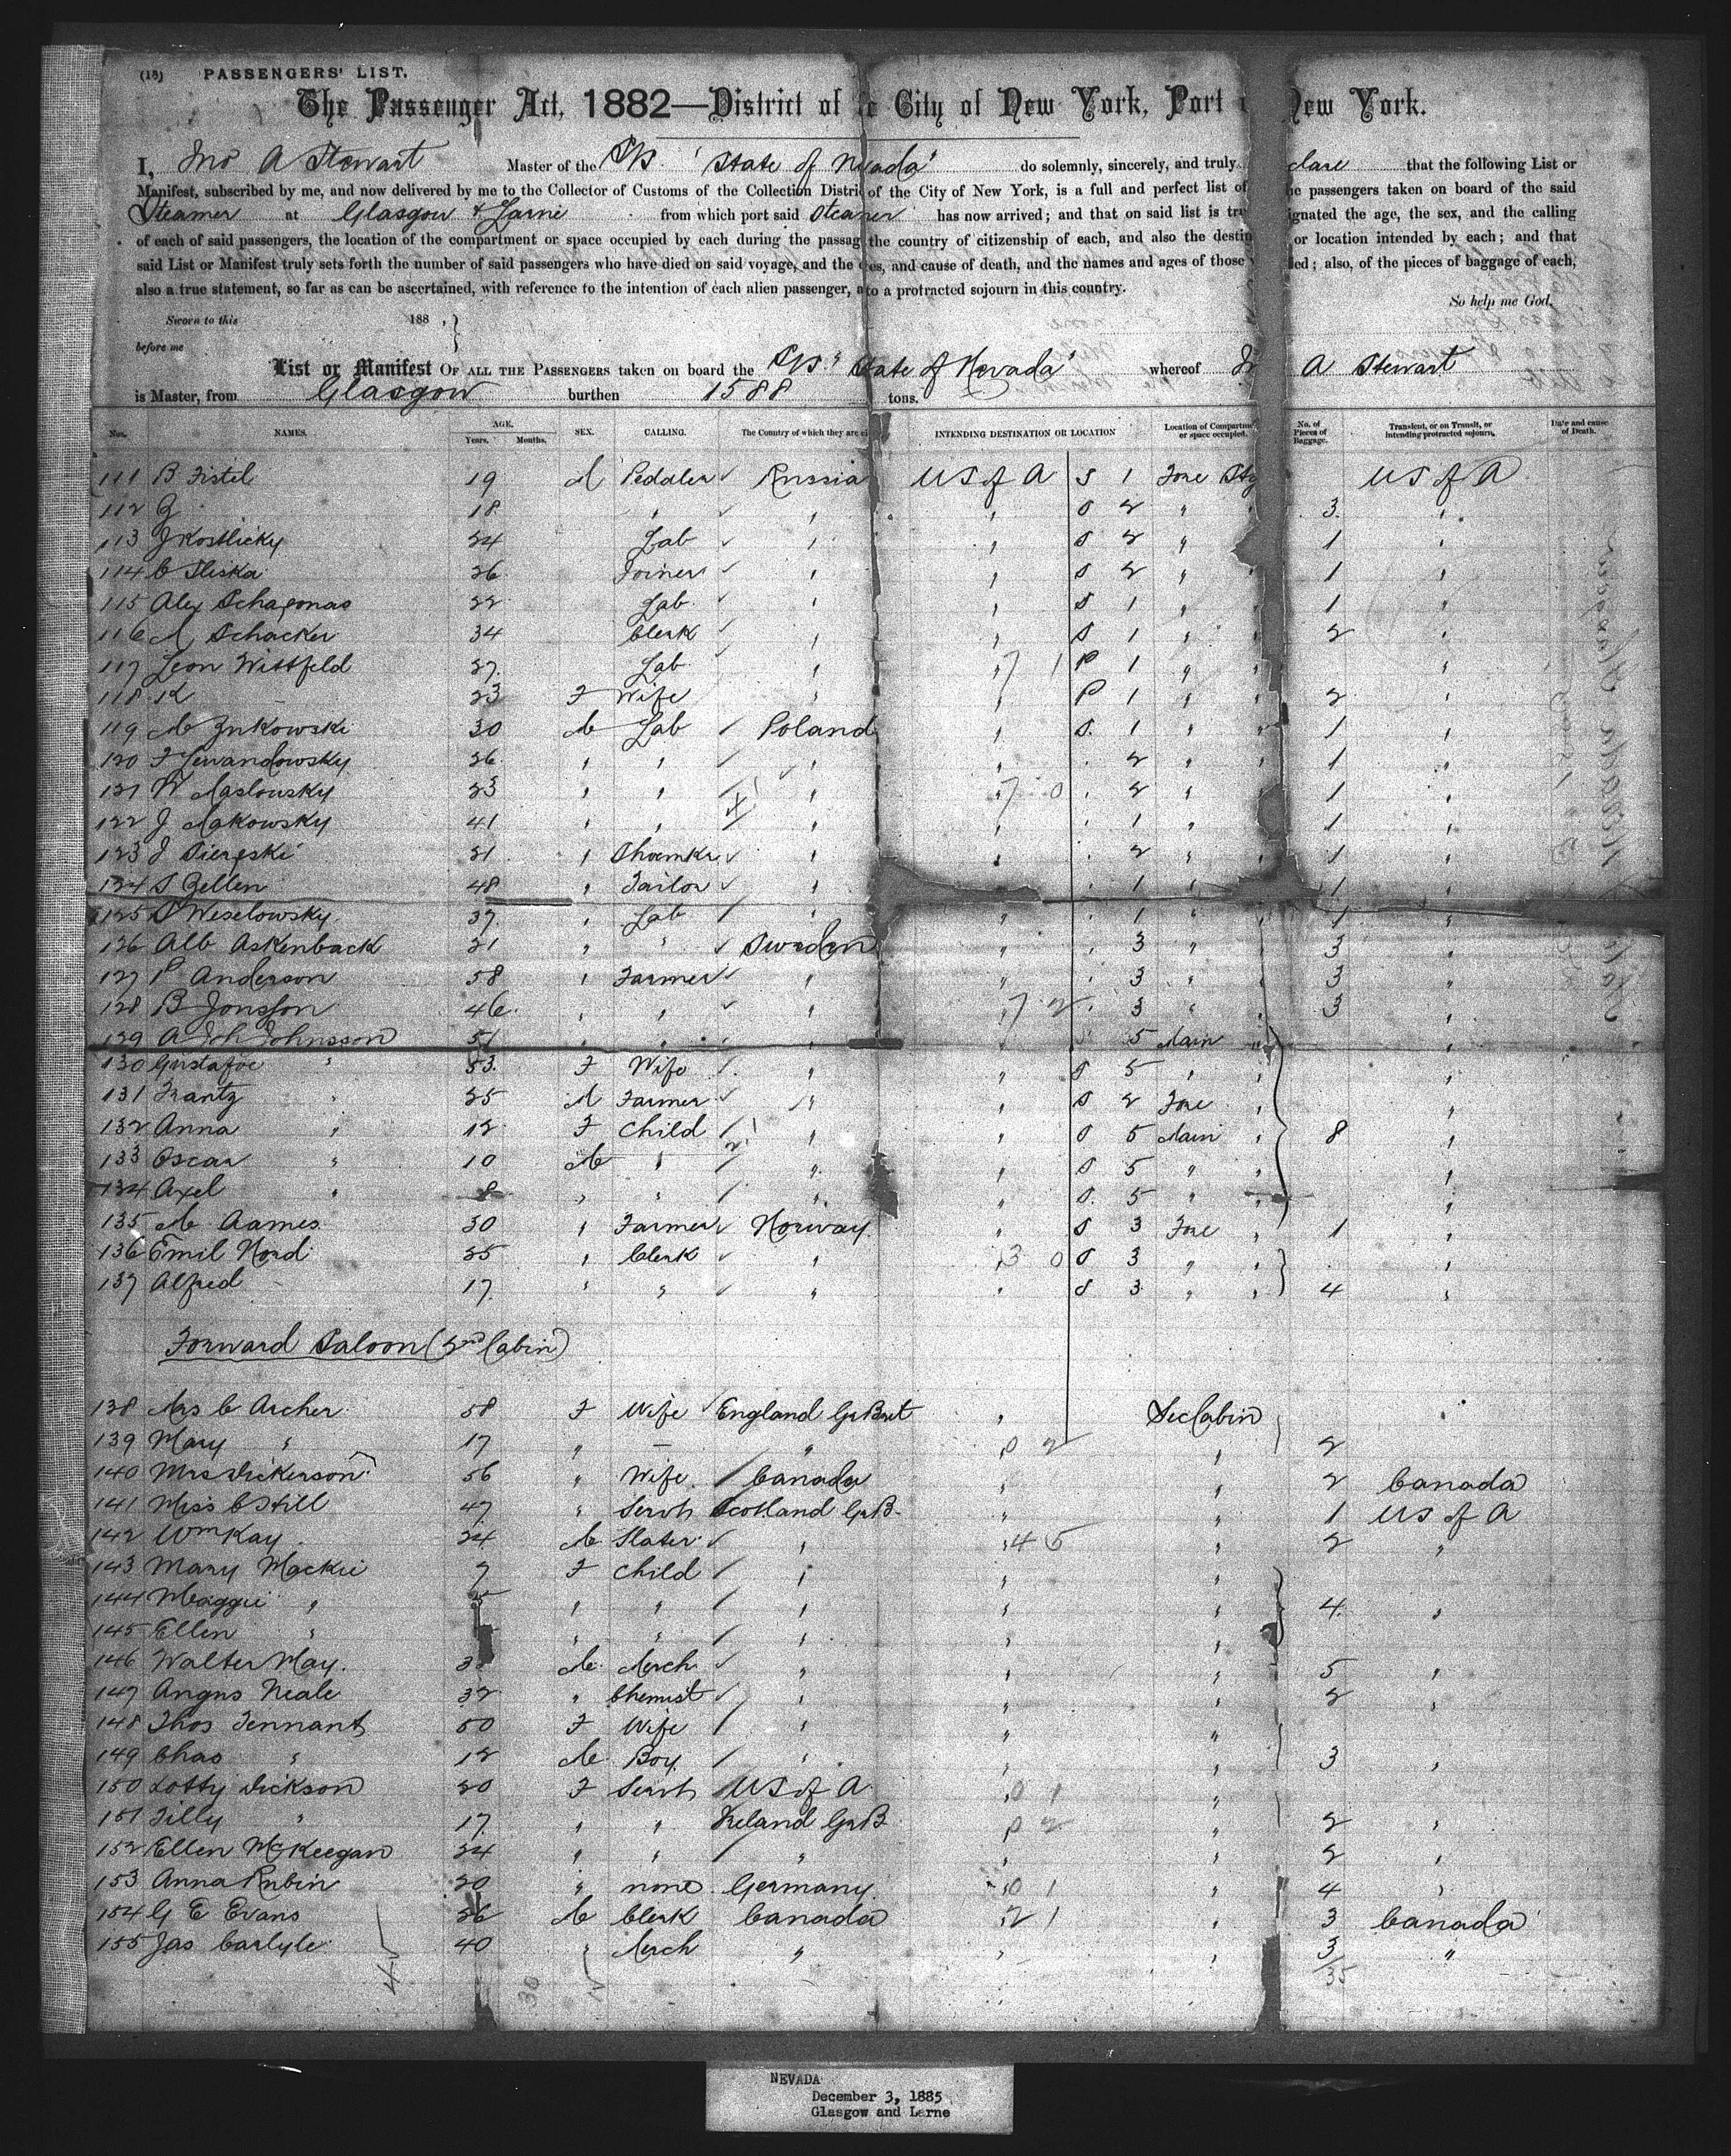 (18) PASSENGERS' LIST.
The Passenger Act, 1882—District of City of New York, Port New York.
I, Jno A Stewart Master of the S/S "State of Nevada" do solemnly, sincerely, and truly clare that the following List or
Manifest, subscribed by me, and now delivered by me to the Collector of Customs of the Collection Distri of the City of New York, is a full and perfect list of he passengers taken on board of the said
Steamer at Glasgow & Larne from which port said Steamer has now arrived; and that on said list is tru ignated the age, the sex, and the calling
of each of said passengers, the location of the compartment or space occupied by each during the passag the country of citizenship of each, and also the destin or location intended by each; and that
said List or Manifest truly sets forth the number of said passengers who have died on said voyage, and the es, and cause of death, and the names and ages of those led; also, of the pieces of baggage of each,
also a true statement, so far as can be ascertained, with reference to the intention of each alien passenger, a to a protracted sojourn in this country.
So help me God.
Sworn to this 188 .
before me
List or Manifest OF ALL THE PASSENGERS taken on board the S/S "State of Nevada" whereof A Stewart
is Master, from Glasgow burthen 1588 tons.
Nos. NAMES. AGE. Years. Months. SEX. CALLING. The Country of which they are ci INTENDING DESTINATION OR LOCATION Location of Compartme or space occupied. No. of Pieces of Baggage. Transient, or on Transit, or intending protracted sojourn. Date and cause of Death.
111 B Fistel 19 M Peddler Russia US of A S 1 Fore Stg US of A
112 G 18 " " " S 2 " 3 "
113 J Kostlicky 24 Lab " " S 2 " 1 "
114 C Sliska 26 Joiner " " S 2 " 1 "
115 Alex 22 Lab " " S 1 " 1 "
116 M Schacker 34 Clerk " " S 1 " 2 "
117 Leon Wittfeld 27 Lab " " 7 1 P 1 " "
118 K 23 F Wife " " P 1 " 2 "
119 M Zukowski 30 M Lab Poland " S 1 " 1 "
120 F Lewandowsky 26 " " " " 2 " 1 "
121 W Maslowsky 23 " " " 7 0 " 2 " 1 "
122 J Makowsky 41 " " " " 1 " 1 "
123 J 21 " Shoemkr " " 2 " 1 "
124 S Zellen 48 " Tailor " 1 " 1 "
125 S Weselowsky 37 " Lab " " 1 " 1 "
126 Alb Askenback 21 " " Sweden " 3 " 3 "
127 P Anderson 58 " Farmer " " 3 " 3 "
128 B Jonsson 46 " " " 7 2 " 3 " 3 "
129 A Joh Johnsson 51 " " " " 5 Main " "
130 Gustafve " 53 F Wife " " S 5 " "
131 Frantz " 25 M Farmer " " S 2 Fore "
132 Anna " 12 F Child " " S 5 Main " 8 "
133 Oscar " 10 M " " " S 5 " "
134 Axel " 8 " " " " S 5 " "
135 M Aames 30 " Farmer Norway " S 3 Fore " 1 "
136 Emil Nord 25 " Clerk " 3 0 S 3 " "
137 Alfred 17 " " " " S 3 " " 4 "
Forward Saloon (2nd Cabin)
138 Mrs C Archer 58 F Wife England Gr Brit " Sec Cabin "
139 Mary " 17 " — " 0 2 " 2
140 Mrs Dickerson 56 " Wife Canada " " 2 Canada
141 Miss C Still 47 " Servt Scotland Gr B " " 1 US of A
142 Wm Kay 24 M Slater " 4 5 " 2 "
143 Mary Mackie 7 F Child " " "
144 Maggie " " " " " " 4 "
145 Ellen " " " " " "
146 Walter May 3 M Merch " " " 5 "
147 Angus Neale 32 " Chemist " " " 2 "
148 Thos Tennant 50 F Wife " " "
149 Chas " 12 M Boy " " " 3 "
150 Lotty Dickson 20 F Servt US of A 0 1 "
151 Tilly " 17 " " Ireland Gr B 0 2 " 2 "
152 Ellen McKeegan 24 " " " " " 2 "
153 Anna Rubin 20 " none Germany 0 1 " 4 "
154 G E Evans 26 M Clerk Canada 2 1 " 3 Canada
155 Jas Carlyle 40 " Merch " " " 3 "
35
NEVADA
December 3, 1885
Glasgow and Larne